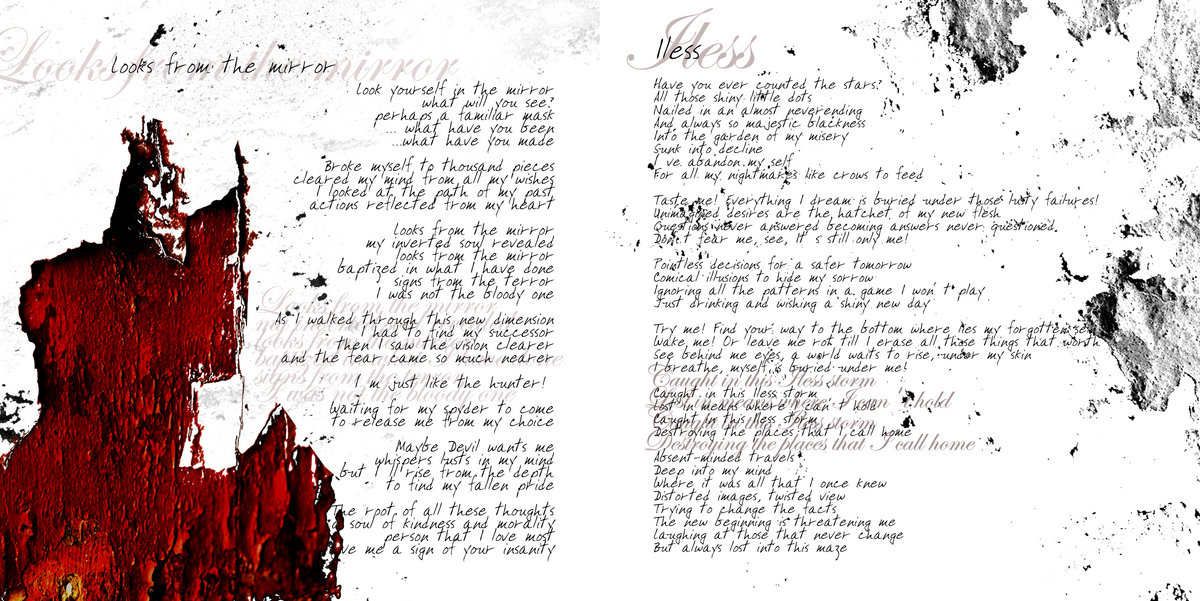 Looks from the mirror
Looks from the mirror
Look yourself in the mirror
what will you see?
perhaps a familiar mask
... what have you been
...what have you made
Broke myself to thousand pieces
cleared my mind from all my wishes
I looked at the path of my past
actions reflected from my heart
Looks from the mirror
my inverted soul revealed
looks from the mirror
baptized in what I have done
signs from the terror
I was not the bloody one
Looks from the mirror
looks from the mirror
signs from the terror
I was not the bloody one
As I walked through this new dimension
I had to find my successor
then I saw the vision clearer
and the fear came so much nearer
I m just like the hunter!
Waiting for my spyder to come
to release me from my choice
Maybe Devil wants me
whispers lusts in my mind
but I ll rise from the depth
to find my fallen pride
The root of all these thoughts
soul of kindness and morality
person that I love most
me a sign of your insanity
Iless
Iless
Have you ever counted the stars?
All those shiny little dots
Nailed in an almost neverending
And always so majestic blackness
Into the garden of my misery
Sunk into decline
I ve abandon my self
For all my nightmares like crows to feed
Taste me! Everything I dream is buried under those rusty failures!
Unimagined desires are the hatchet of my new flesh
Questions never answered becoming answers never questioned.
Don t fear me, see, It s still only me!
Pointless decisions for a safer tomorrow
Comical illusions to hide my sorrow
Ignoring all the patterns in a game I won t play
Just drinking and wishing a shiny new day
Try me! Find your way to the bottom where lies my forgotten self
Wake me! Or leave me rot till I erase all those things that worth
See behind me eyes, a world waits to rise, under my skin
I breathe, myself is buried under me!
Caught in this Iless storm
Caught in this Iless storm
Lost in means where I can t hold
Lost in means where I can t hold
Caught in this Iless storm
Caught in this Iless storm
Destroying the places that I call home
Destroying the places that I call home
Absent-minded travels
Deep into my mind
Where it was all that I once knew
Distorted images, twisted view
Trying to change the facts
The new beginning is threatening me
laughing at those that never change
But always lost into this maze